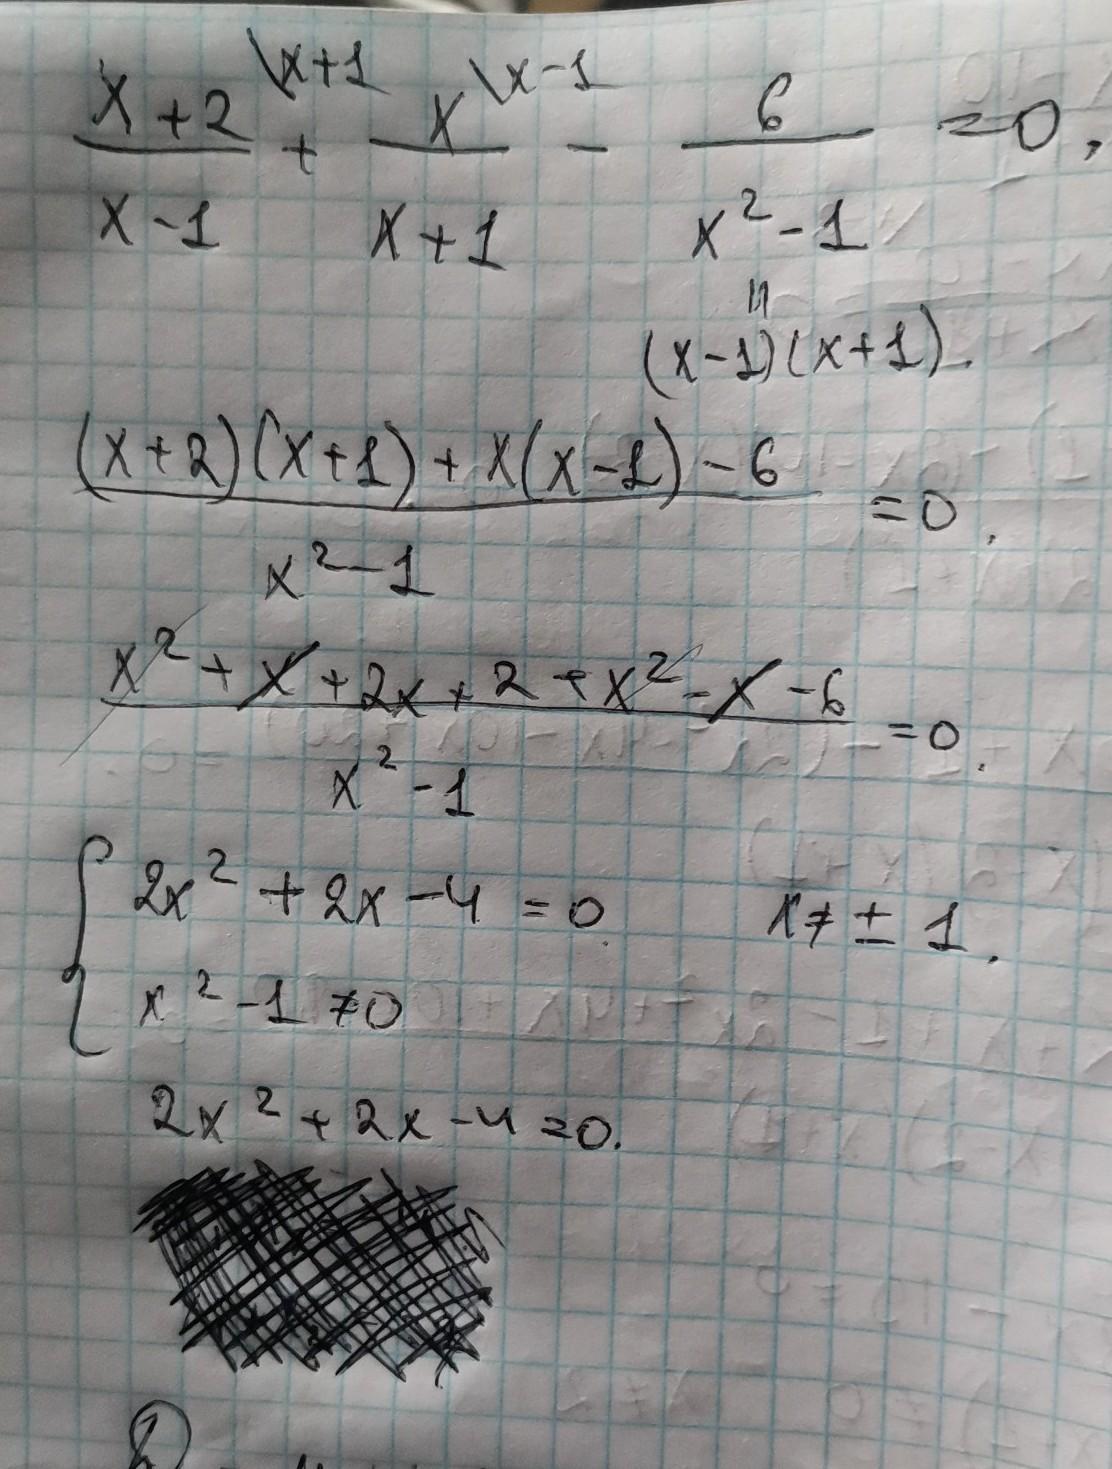 \x+1 \x-1
x+2/x-1 + x/x+1 - 6/x²-1 =0,
(x-1)(x+1).
(x+2)(x+1)+x(x-1)-6/x²-1 =0,
x²+x+2x+2+x²-x-6/x²-1 =0,
{2x²+2x-4=0, x≠±1,
x²-1≠0
2x²+2x-4=0.